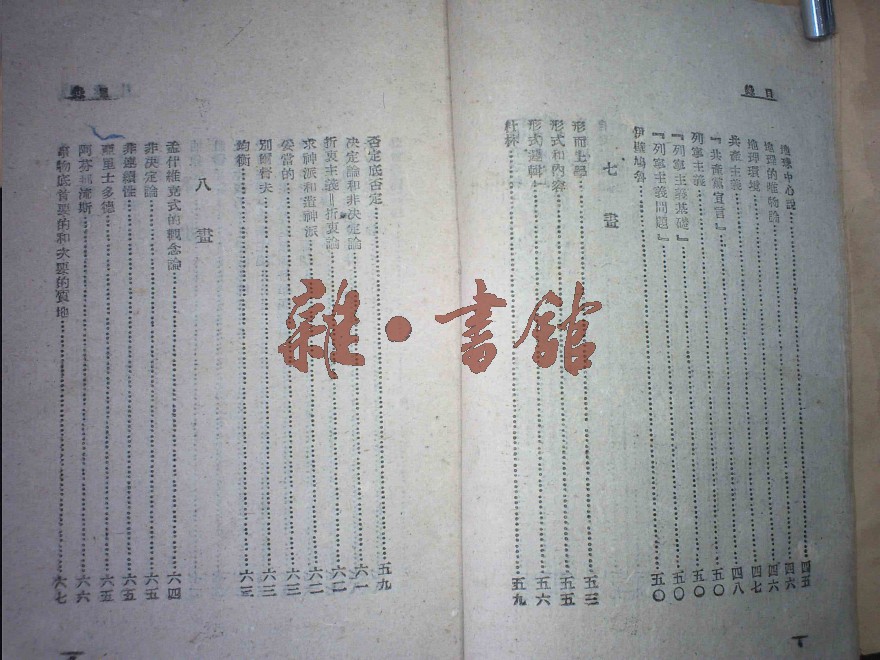 目錄
地球中心說 四五
地理的唯物論 四六
地理環境 四七
共產主義 四八
『共產黨宣言』 五〇
列寧主義 五〇
『列寧主義基礎』 五〇
『列寧主義問題』 五〇
伊壁鳩魯
七畫
形而上學 五三
形式和內容 五五
形式邏輯 五六
杜林 五九
目錄
否定底否定 五九
決定論和非決定論 六一
折衷主義＝折衷論 六二
求神派和造神派 六二
妥當的 六三
別爾特夫 六三
均衡 六三
八畫
孟什維克式的觀念論 六四
非決定論 六五
非連續性 六五
亞里士多德 六五
阿芬那流斯 六六
事物底首要的和次要的質地 六七
雜·書館